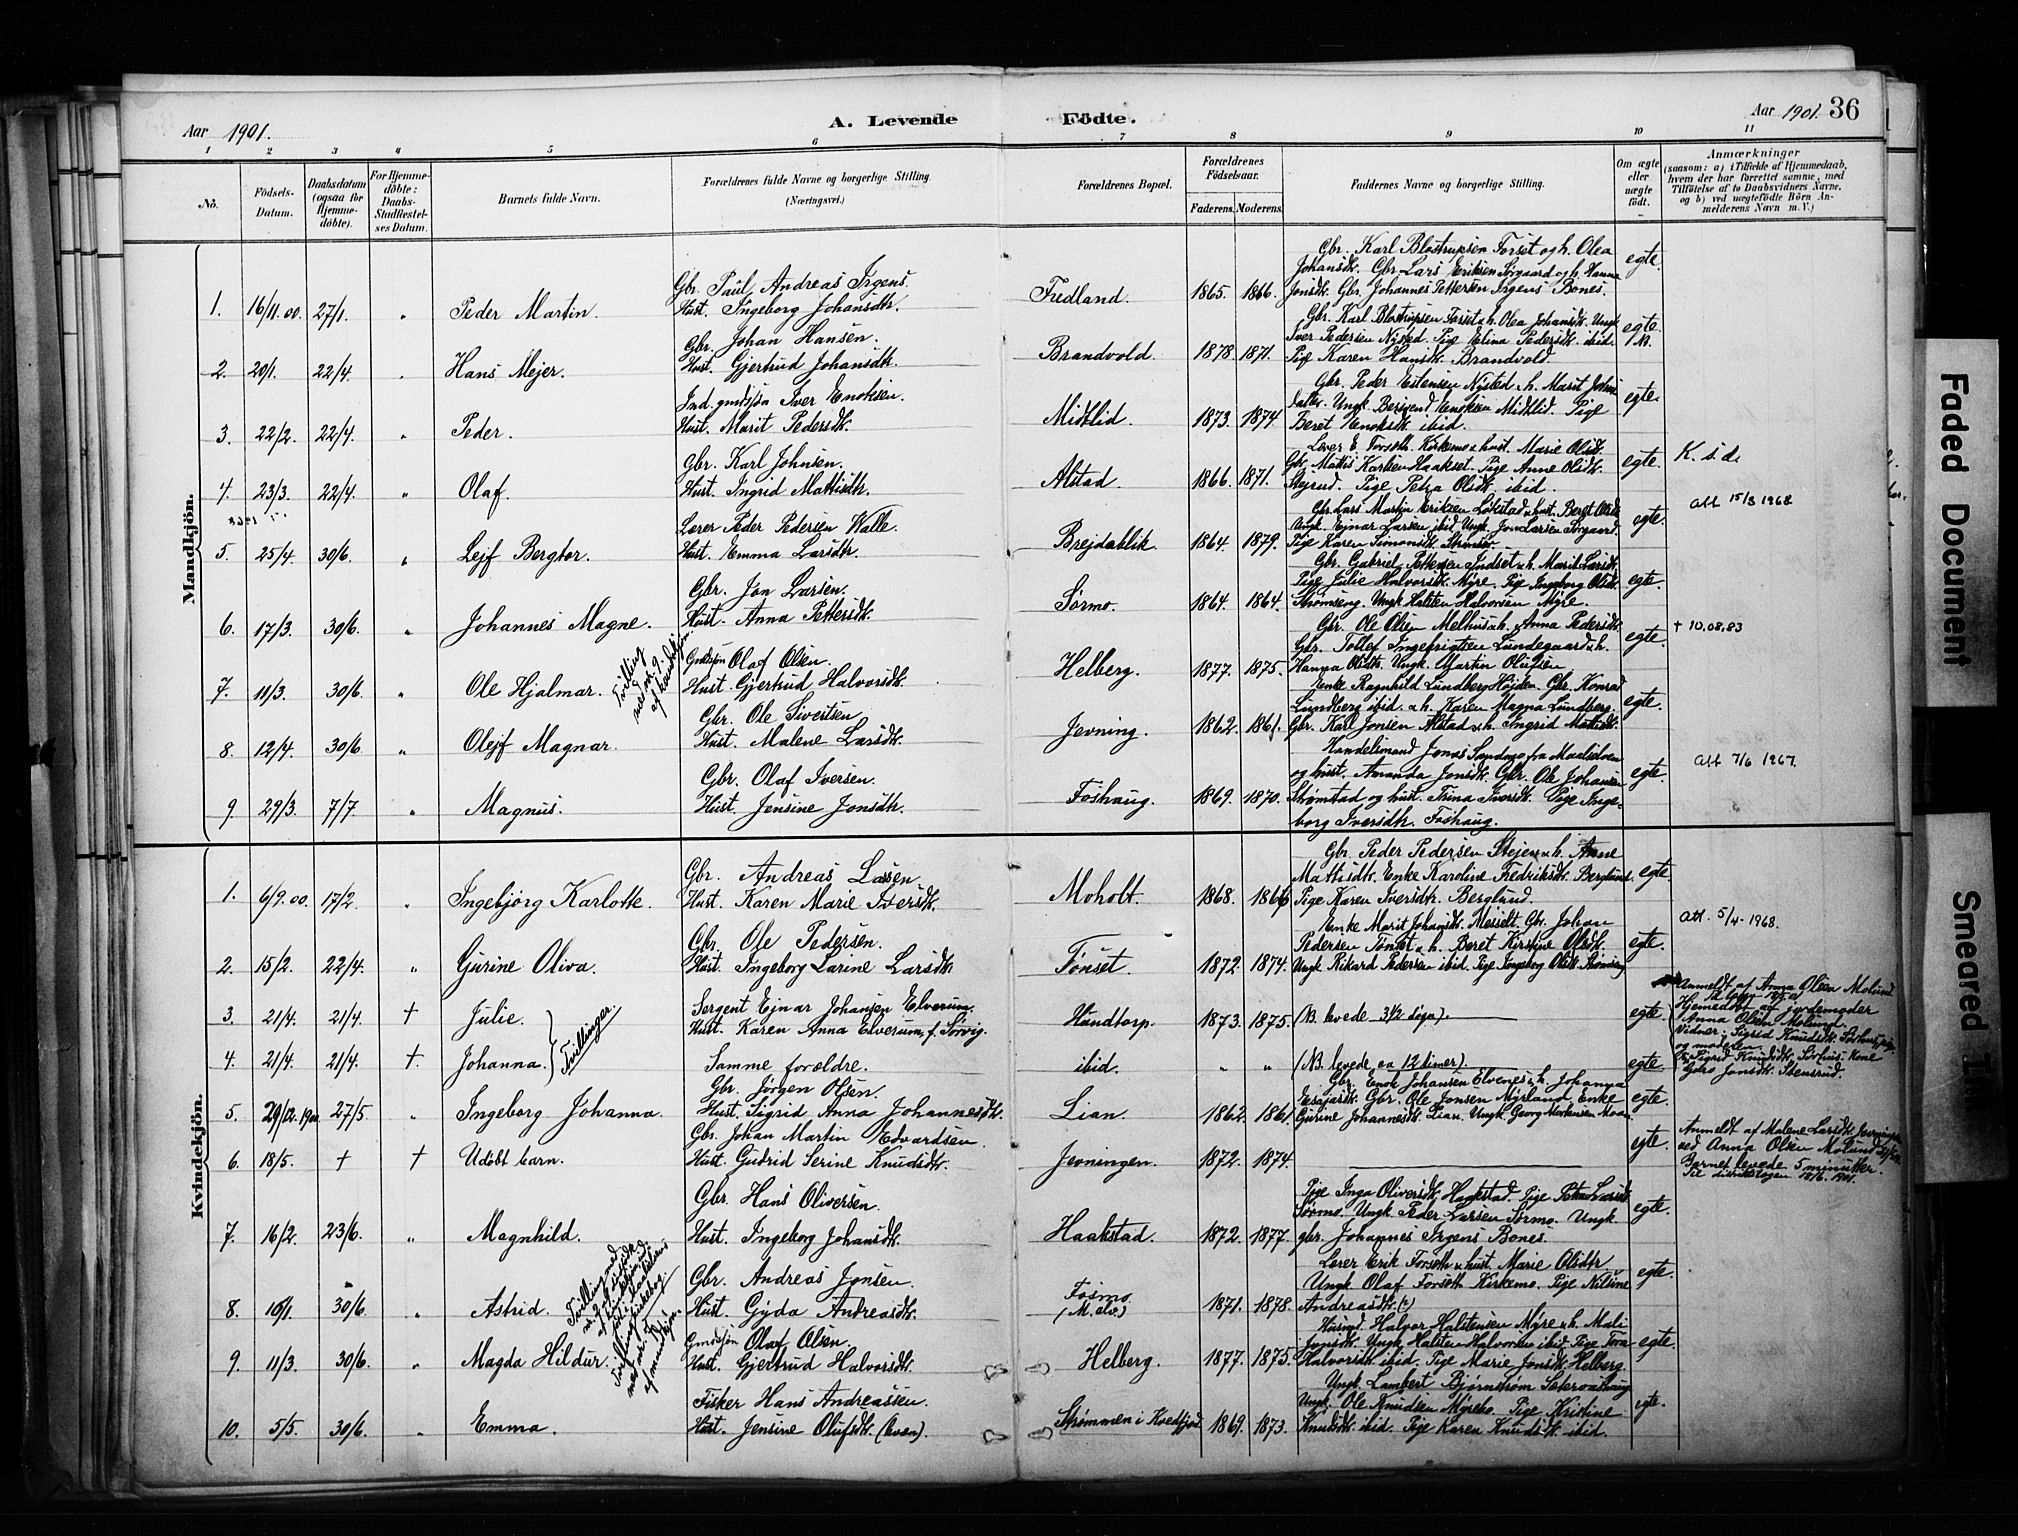 Aar 1901.
A. Levende Födte.
Aar 1901. 36
1 2 3 4 5 6 7 8 9 10 11
Nö.
Födsels-Datum.
Daabsdatum (ogsaa for Hjemme-döbte).
For Hjemme-döbte: Daabs-Stadfestel-ses Datum.
Barnets fulde Navn.
Forældrenes fulde Navne og borgerlige Stilling. (Næringsvei.)
Forældrenes Bopæl.
Forældrenes Födselsaar.
Faderens. Moderens.
Faddernes Navne og borgerlige Stilling.
Om ægte eller uægte födt.
Anmærkninger (saasom: a) i Tilfælde af Hjemmedaab, hvem der har forrettet samme, med Tilföielse af to Daabsvidners Navne. og b) ved uægtefödte Börn An-melderens Navn m. V.)
Mandkjön.
Gbr. Karl Blostrupsen Forset og h. Olea
Gbr. Paul Andreas Irgens. Johansdtr. Gbr. Lars Eriksen Sørgaard og h. Hanna egte.
1. 16/11.00. 27/1. " Peder Martin. Hust. Ingeborg Johansdtr. Fredland. 1865. 1866. Jonsdtr. Gbr. Johannes Pettersen Irgens Bones.
Gbr. Karl Blostrupsen Forset & h. Olea Johansdtr. Ungk.
Gbr. Johan Hansen. Iver Pedersen Nysted. Pige Elina Pedersdtr. ibid. egte
2. 20/1. 22/4. " Hans Mejer. Hust. Gjertrud Johansdtr. Brandvold. 1878. 1871. Pige Karen Hansdtr. Brandvold.
Gbr. Peder Estensen Nysted & h. Marit
Ind. gmdssøn Iver Enoksen. Ungk. Enoksen Midtlid. Pige egte.
3. 22/2. 22/4. " Peder. Hust. Marit Pedersdtr. Midtlid. 1873. 1874 Beret Enoksdtr. ibid.
Lærer E. Forseth Kirkemo & hust. Marie Olsdtr.
Gbr. Karl Johnsen. Gbr. Mattis Karlsen Haakset. Pige Anne Olsdtr. egte. K. s. d.
4. 23/3. 22/4. " Olaf. Hust. Ingrid Mattisdtr. Alstad. 1866. 1871. Pige Petra Olsdtr. ibid.
Att 15/8 1968
Gbr. Lars Martin Eriksen & hust. Beret Olsdtr.
Lærer Peder Pedersen Walle. Ungk. Ejnar Larsen ibid. Ungk. Jon Larsen Sørgaard. egte.
5. 25/4. 30/6. " Lejf Bergtor. Hust. Emma Larsdtr. Brejdablik. 1864. 1879. Pige Karen Simonsdtr.
Gbr. Gabriel Pettersen & h. Marit Larsdtr.
Gbr. Jon Larsen. Pige Julie Halvorsdtr. Myre. Pige Ingeborg Olsdtr. egte.
6. 17/3. 30/6. " Johannes Magne. Hust. Anna Pettersdtr. Sørmo. 1864. 1864. Strømseng. Ungk. Halsten Halvorsen Myre.
† 10.08.83
Gbr. Ole Olsen Melhus & h. Anna Pedersdtr.
Gmdssøn Olaf Olsen. Gbr. Tollef Ingebrigtsen Lundegaard & h. egte.
7. 11/3. 30/6. " Ole Hjalmar. Tvilling med nr. 9 af kvindekjøn. Hust. Gjertrud Halvorsdtr. Helberg. 1877. 1875. Hanna Olsdtr. Ungk. Martin Olufsen.
Enke Ragnhild Lundberg Højden. Gbr. Konrad
Gbr. Ole Sivertsen Lundberg ibid. & h. Karen Magna Lundberg. egte.
8 12/4. 30/6 " Olejf Magnar. Hust. Malene Larsdtr. Jevning. 1862. 1861. Gbr. Karl Jonsen Alstad & h. Ingrid Mattisdtr.
Handelsmand Jonas fra Maalselven
Gbr. Olaf Iversen. og hust. Amanda Jonsdtr. Gbr. Ole Johansen egte. Att 7/6 1967.
9 29/3. 7/7. " Magnus. Hust. Jensine Jonsdtr. Foshaug. 1869. 1870. Strømstad og hust. Trina Iversdtr. Pige Inge-
borg Iversdtr. Foshaug.
Kvindekjön.
Gbr. Peder Pedersen Stejen & h. Anne
Gbr. Andreas Larsen Mattisdtr. Enke Karoline Fredriksdtr. Berglund egte.
1. 6/9.00. 17/2. " Ingebjørg Karlotte. Hust. Karen Marie Iversdtr. Moholt. 1868. 1866 Pige Karen Iversdtr. Berglund.
Att. 5/4-1968.
Enke Marit Johansdtr. Messelt. Gbr. Johan
Gbr. Ole Pedersen. Pedersen Tønset & h. Beret Kirstine Olsdtr. egte.
2. 15/2. 22/4. " Gurine Oliva. Hust. Ingeborg Larine Larsdtr. Tønset. 1872 1874. Ungk. Rikard Pedersen ibid. Pige Ingeborg Olsdtr. Strømseng
Sergent Ejnar Johansen Elverum.
3. 21/4. 21/4. † Julie. Tvillinger. Hust. Karen Anna Elverum, f. Sørvig. Hundtorp. 1873. 1875. (N.B. levede 3½ døgn). egte
Anmeldt af Anna Olsen Molund
Hjemedøbt af jordemoder
Anna Olsen Molund.
Vidner: Sigrid Knudsdtr. Sørhus, pige
og moderen.
4. 21/4. 21/4. † Johanna. Samme forældre. ibid. " " (N.B. levede ca 12 timer). egte.
Sigrid Knudsdtr. Sørhus. Kone
Goro Jonsdtr. Stensrud.
Gbr. Jørgen Olsen. Gbr. Enok Johansen Elvenes & h. Johanna
5. 29/12. 1900 27/5. " Ingeborg Johanna. Hust. Sigrid Anna Johannesdtr. Lian. 1862. 1861. Esajasdtr. Gbr. Ole Jonsen Myrland. Enke egte.
Gurine Johannesdtr. Lian. Ungk. Georg Mortensen Moan.
Gbr. Johan Martin Edvardsen.
6. 18/5. † † Udøbt barn. Hust. Gudrid Serine Knudsdtr. Jevningen. 1872. 1874. egte.
Anmeldt af Malene Larsdtr. Jevningen
ved Anna Olsen Molund
Barnet levede 5 minutter.
Til distriktslægen 18/6. 1901.
Gbr. Hans Oliversen. Pige Inga Oliversdtr. Haakstad. Pige Petra Larsdtr.
Sørmo. Ungk. Peder Larsen Sørmo. Ungk. egte.
7. 16/2. 23/6. " Magnhild. Hust. Ingeborg Johansdtr. Haakstad. 1872. 1877. gbr. Johannes Irgens Bones.
Lærer Erik Forseth & hust. Marie Olsdtr
Gbr. Andreas Jonsen. Ungk. Olaf Forseth Kirkemo. Pige Nilsine egte.
8. 16/1. 30/6. " Astrid. Hust. Gyda Andreasdtr. Fosmo (M.elv.) 1871. 1878. Andreasdtr.
Husmd. Halvor Halstensen Myre & h. Mali
Gmdssøn Olaf Olsen. Jonsdtr. Ungk. Halsten Halvorsen ibid. Pige Tora egte.
9. 11/3. 30/6. " Magda Hildur. Tvilling med nr. 7 af mandkjøn. Hust. Gjertrud Halvorsdtr. Helberg. 1877. 1875. Halvorsdtr. ibid. Pige Marie Jonsdtr. Helberg.
Ungk. Lambert Bjørnstrøm
Fisker Hans Andreassen. Ungk. Ole Knudsen Myrebo. Pige Kristine egte.
10. 5/5. 30/6. " Emma. Hust. Jensine Olufsdtr. (kven). Strømmen i Kvedfjord 1869. 1873. Knudsdtr. ibid. Pige Karen Knudsdtr. ibid.
Faded Document
Smeared I